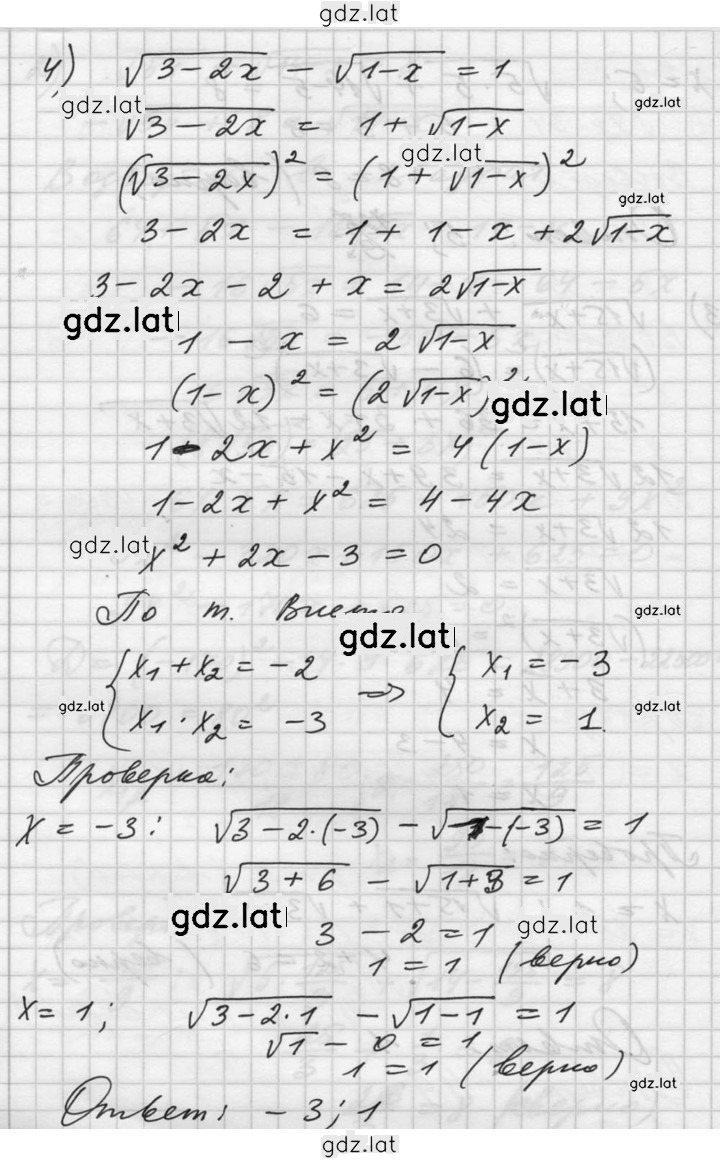 gdz.lat
4) √(3 − 2x) − √(1−x) = 1
gdz.lat gdz.lat
√(3 − 2x) = 1 + √(1−x)
gdz.lat
(√(3 − 2x))² = (1 + √(1−x))²
gdz.lat
3 − 2x = 1 + 1 − x + 2√(1−x)
3 − 2x − 2 + x = 2√(1−x)
gdz.lat
1 − x = 2 √(1−x)
(1 − x)² = (2 √(1−x))²
gdz.lat
1 − 2x + x² = 4 (1−x)
1 − 2x + x² = 4 − 4x
gdz.lat x² + 2x − 3 = 0
По т. Виета gdz.lat
gdz.lat
{ x₁ + x₂ = −2 ⇒ { x₁ = −3
gdz.lat gdz.lat
x₁ · x₂ = −3 x₂ = 1.
Проверка:
x = −3: √(3 − 2·(−3)) − √(1−(−3)) = 1
√(3 + 6) − √(1+3) = 1
gdz.lat gdz.lat
3 − 2 = 1
1 = 1 (верно)
x = 1; √(3 − 2·1) − √(1 − 1) = 1
√1 − 0 = 1
1 = 1 (верно)
gdz.lat
Ответ: −3; 1
gdz.lat